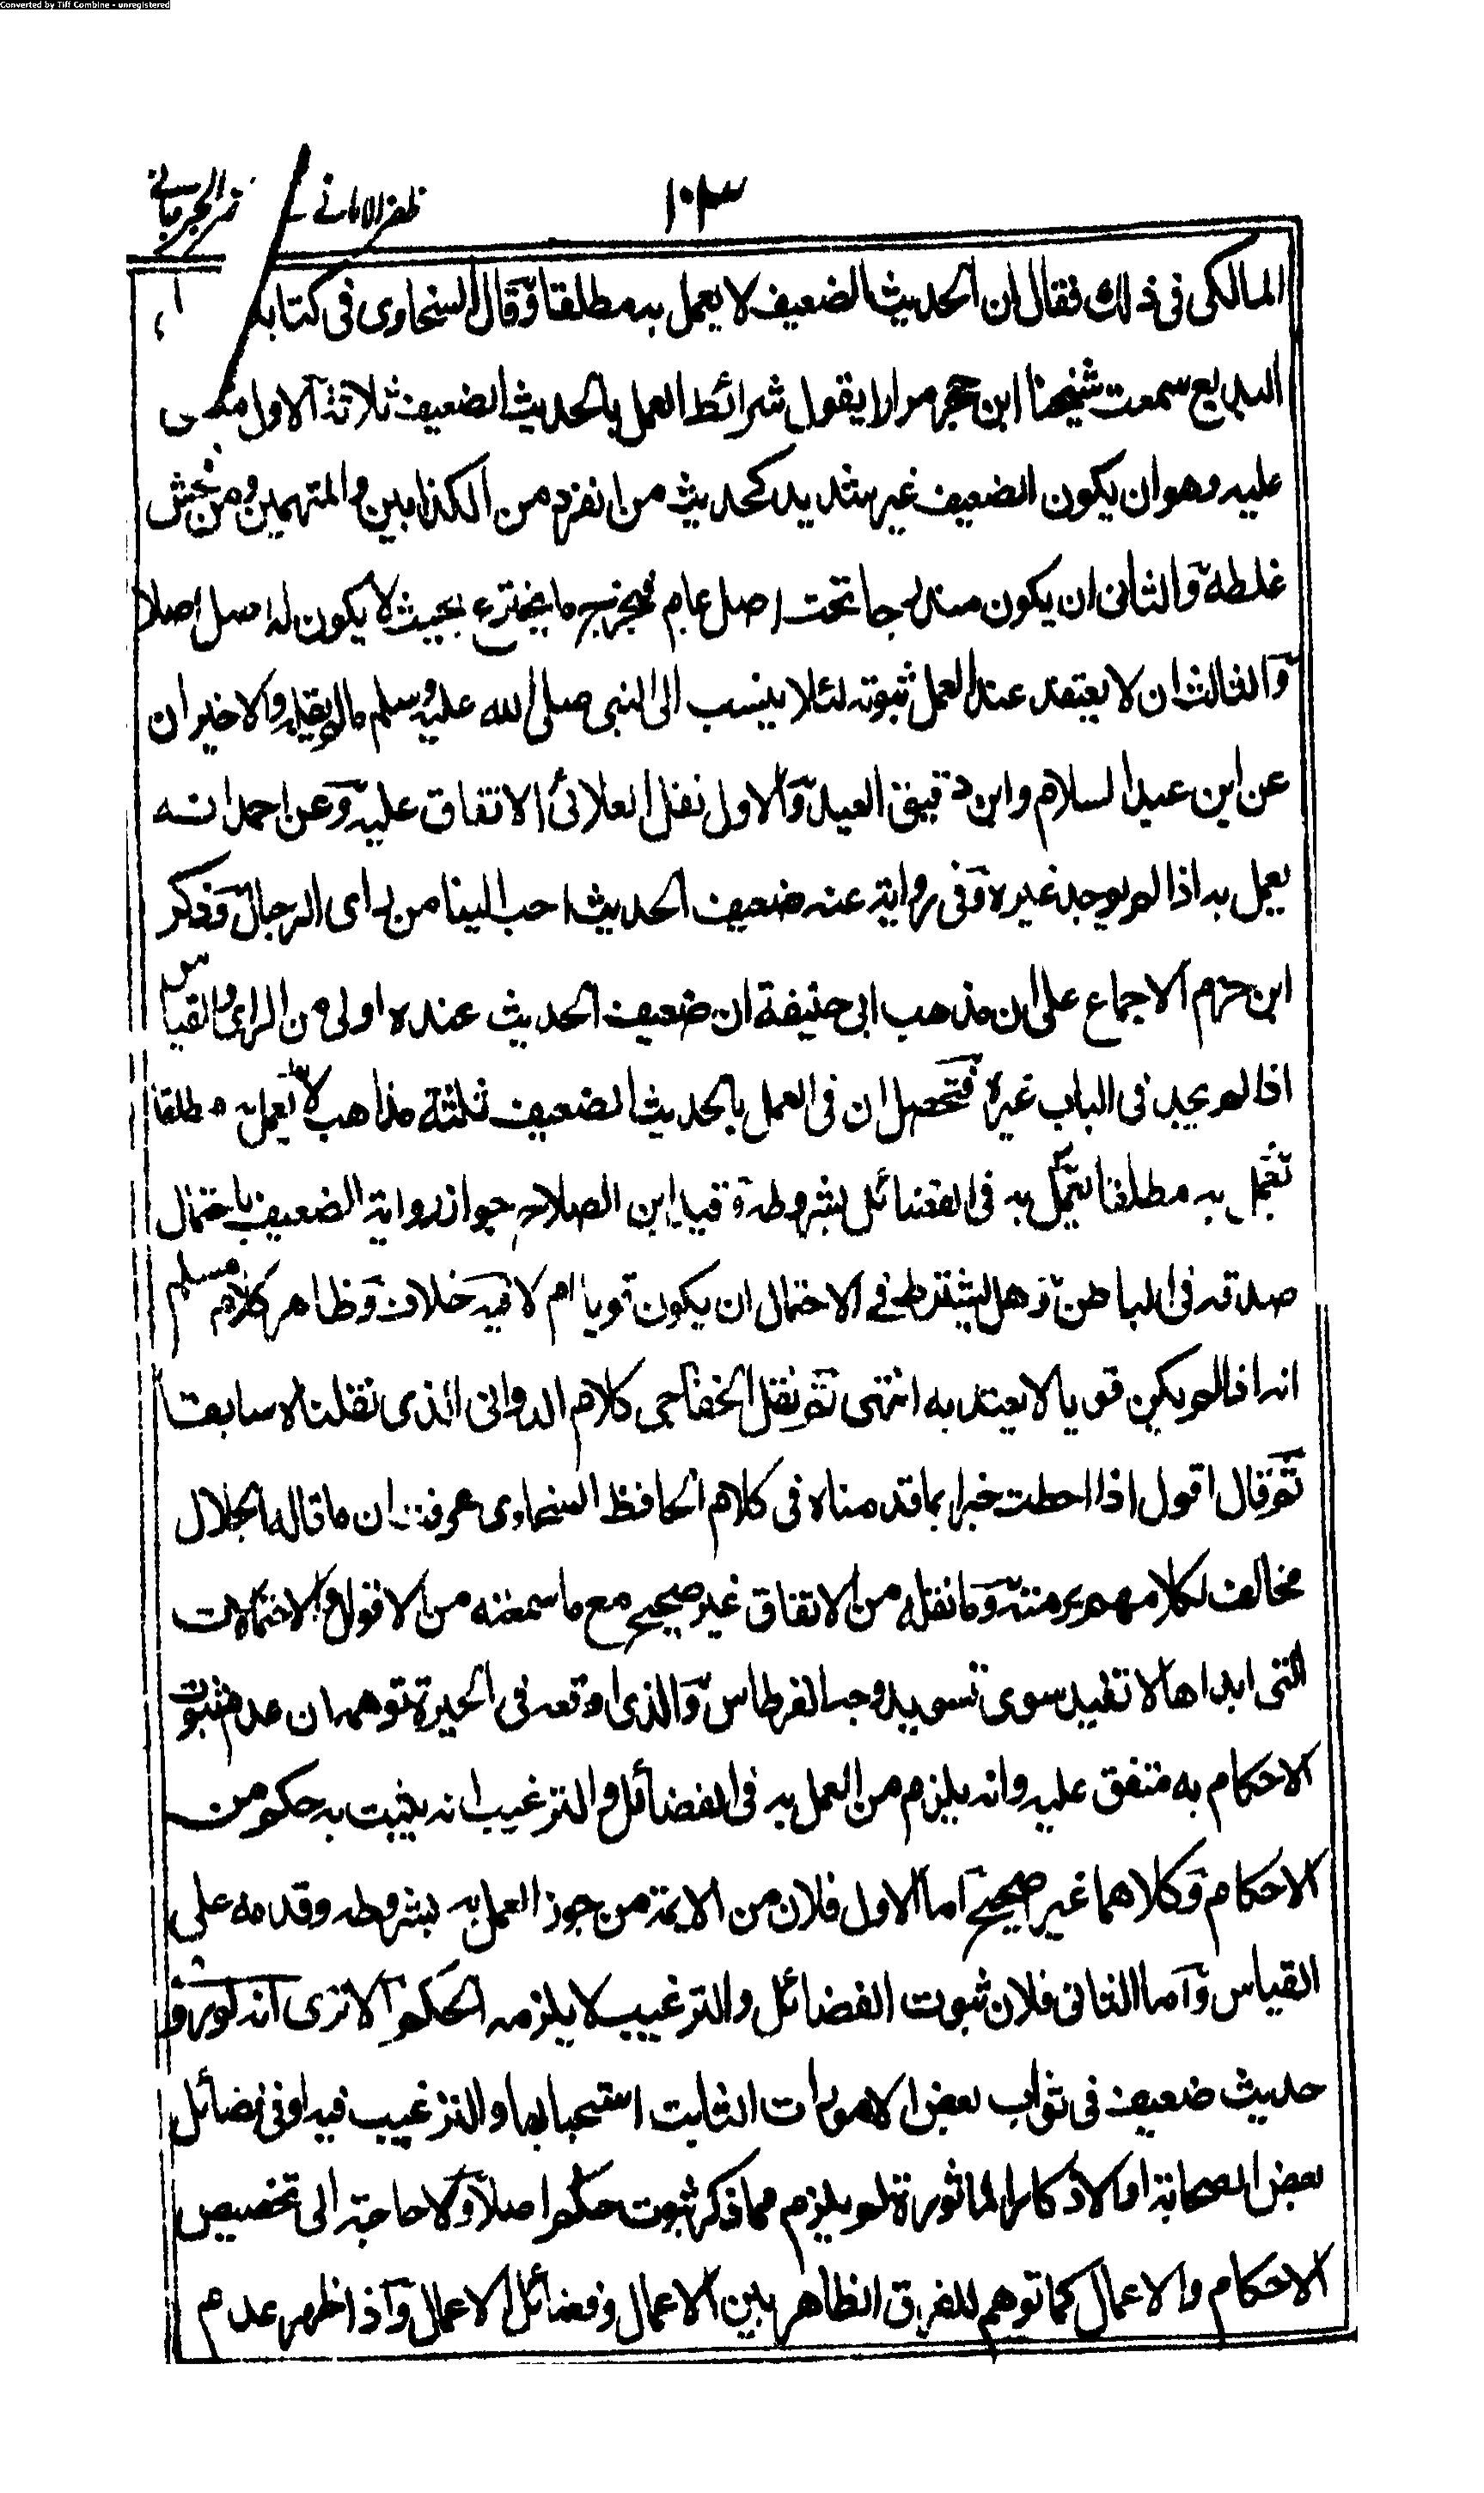 Converted by Tiff Combine - unregistered
١٠٣
ظفر الامانی
المالكى فى ذلك فقال ان الحديث الضعيف لا يعمل به مطلقا وقال السخاوى فى كتابه
البديع سمعت شيخنا ابن حجر مرارا يقول شرائط العمل بالحديث الضعيف ثلاثة الاول متفق
عليه وهو ان يكون الضعيف غير شديد كحديث من انفرد من الكذابين والمتهمين ومن فحش
غلطه والثانى ان يكون مندرجا تحت اصل عام فيخرج ما يخترع بحيث لا يكون له اصل اصلا
والثالث ان لا يعتقد عند العمل ثبوته لئلا ينسب الى النبى صلى الله عليه وسلم مالم يقله والاخيران
عن ابن عبد السلام وابن دقيق العيد والاول نقل العلائى الاتفاق عليه وعن احمد انه
يعمل به اذا لم يوجد غيره وفى رواية عنه ضعيف الحديث احب الينا من رأى الرجال وذكر
ابن حزم الاجماع على ان مذهب ابى حنيفة ان ضعيف الحديث عنده اولى من الراى والقياس
اذا لم يجد فى الباب غيره فتحصل ان فى العمل بالحديث الضعيف ثلثة مذاهب لا يعمل به مطلقا
يعمل به مطلقا يعمل به فى الفضائل بشروطه وقيد ابن الصلاح جواز رواية الضعيف باحتمال
صدقه فى الباطن وهل يشترط فى الاحتمال ان يكون قويا ام لا فيه خلاف وظاهر كلام مسلم
انه اذا لم يكن قويا لا يعتد به انتهى ثم نقل الخفاجى كلام الدوانى الذى نقلناه سابقا
ثم قال اقول اذا احطت خبرا بما قدمناه فى كلام الحافظ السخاوى عرفت ان ما قاله الجلال
مخالف لكلامهم برمته وما نقله من الاتفاق غير صحيح مع ما سمعته من الاقوال والاحتمالات
التى ابداها لا تفيد سوى تسويد وجه القرطاس والذى اوقعه فى الحيرة توهمه ان عدم ثبوت
الاحكام به متفق عليه وانه يلزم من العمل به فى الفضائل والترغيب انه يثبت به حكم من
الاحكام وكلاهما غير صحيح اما الاول فلان من الائمة من جوز العمل به بشروطه وقدمه على
القياس واما الثانى فلان ثبوت الفضائل والترغيب لا يلزمه الحكم الا ترى انه لو روى
حديث ضعيف فى ثواب بعض الامورات الثابت استحبابها والترغيب فيه او فى فضائل
بعض الصحابة او الاذكار الماثورة لم يلزم مما ذكر ثبوت حكم اصلا ولا حاجة الى تخصيص
الاحكام والاعمال كما توهم للفرق الظاهر بين الاعمال وفضائل الاعمال واذا ظهر عدم